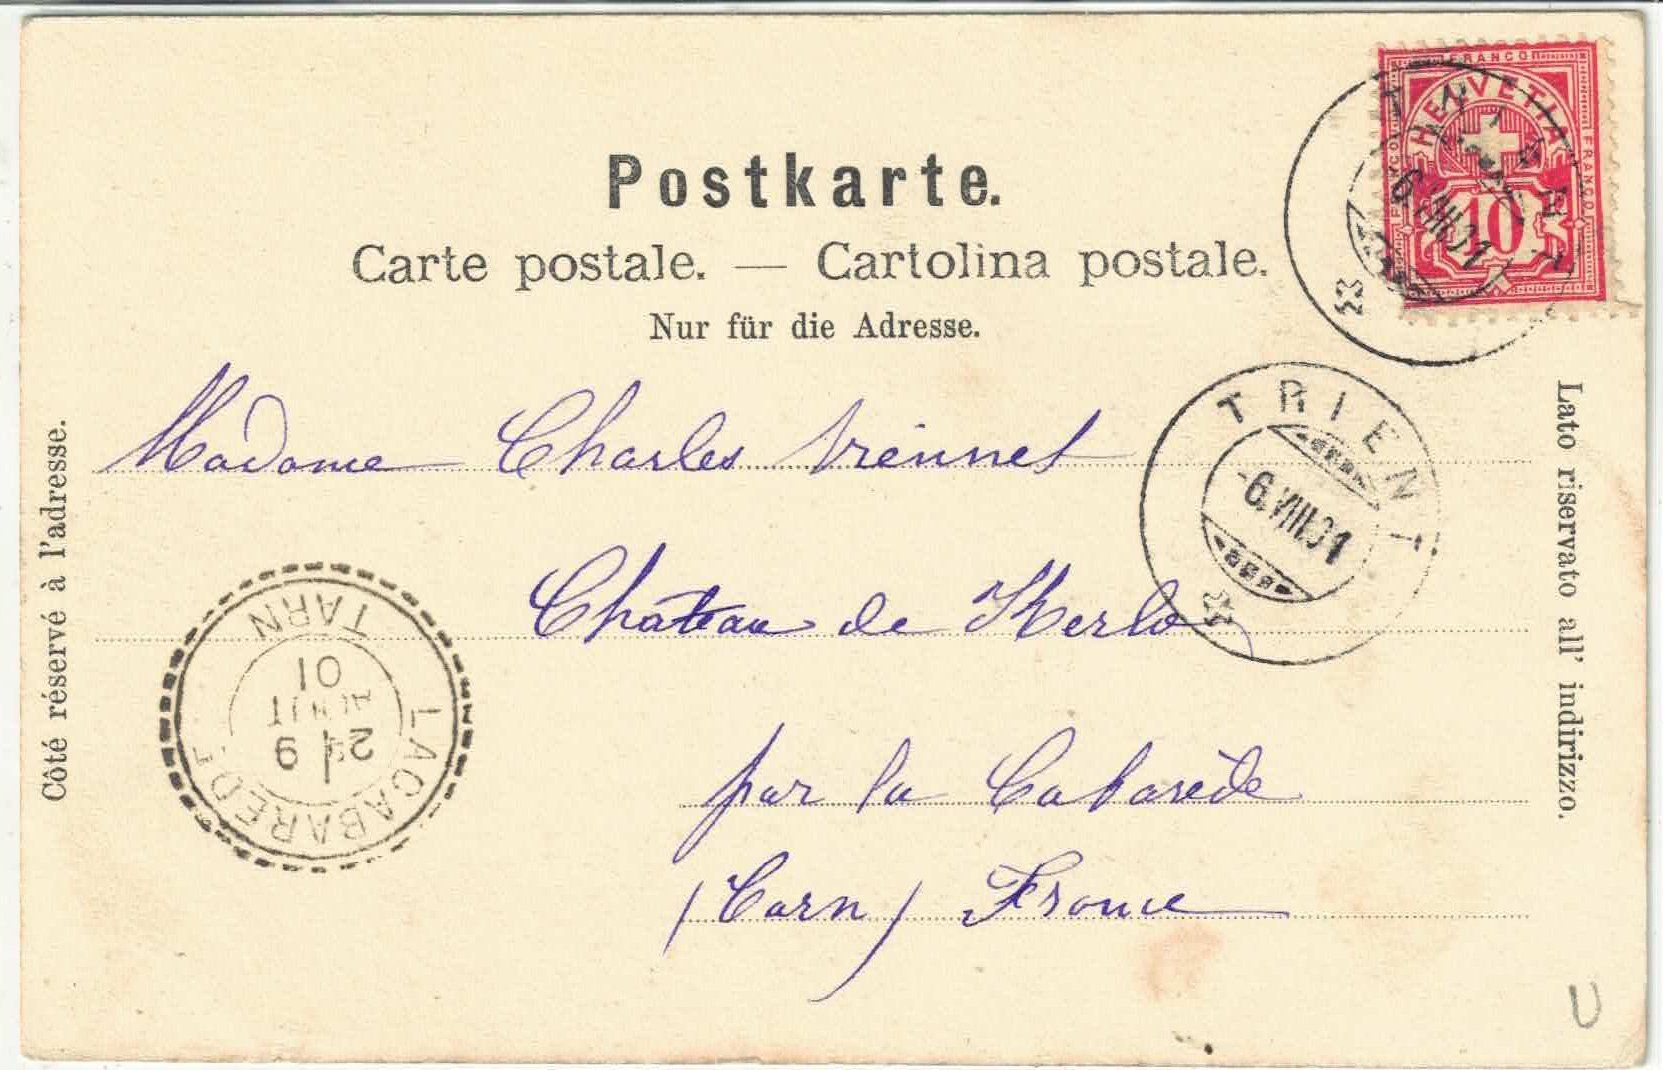 FRANCO
HELVETIA
FRANCO
FRANCO
10
6.VIII.01
Postkarte.
Carte postale. — Cartolina postale.
Nur für die Adresse.
Côté réservé à l'adresse.
Lato riservato all' indirizzo.
TRIENT
-6.VIII.01
Madame Charles
Château de Kerlo
par la Cabarède
(Tarn) France
LACABARÈDE
TARN
9
AOUT
01
U